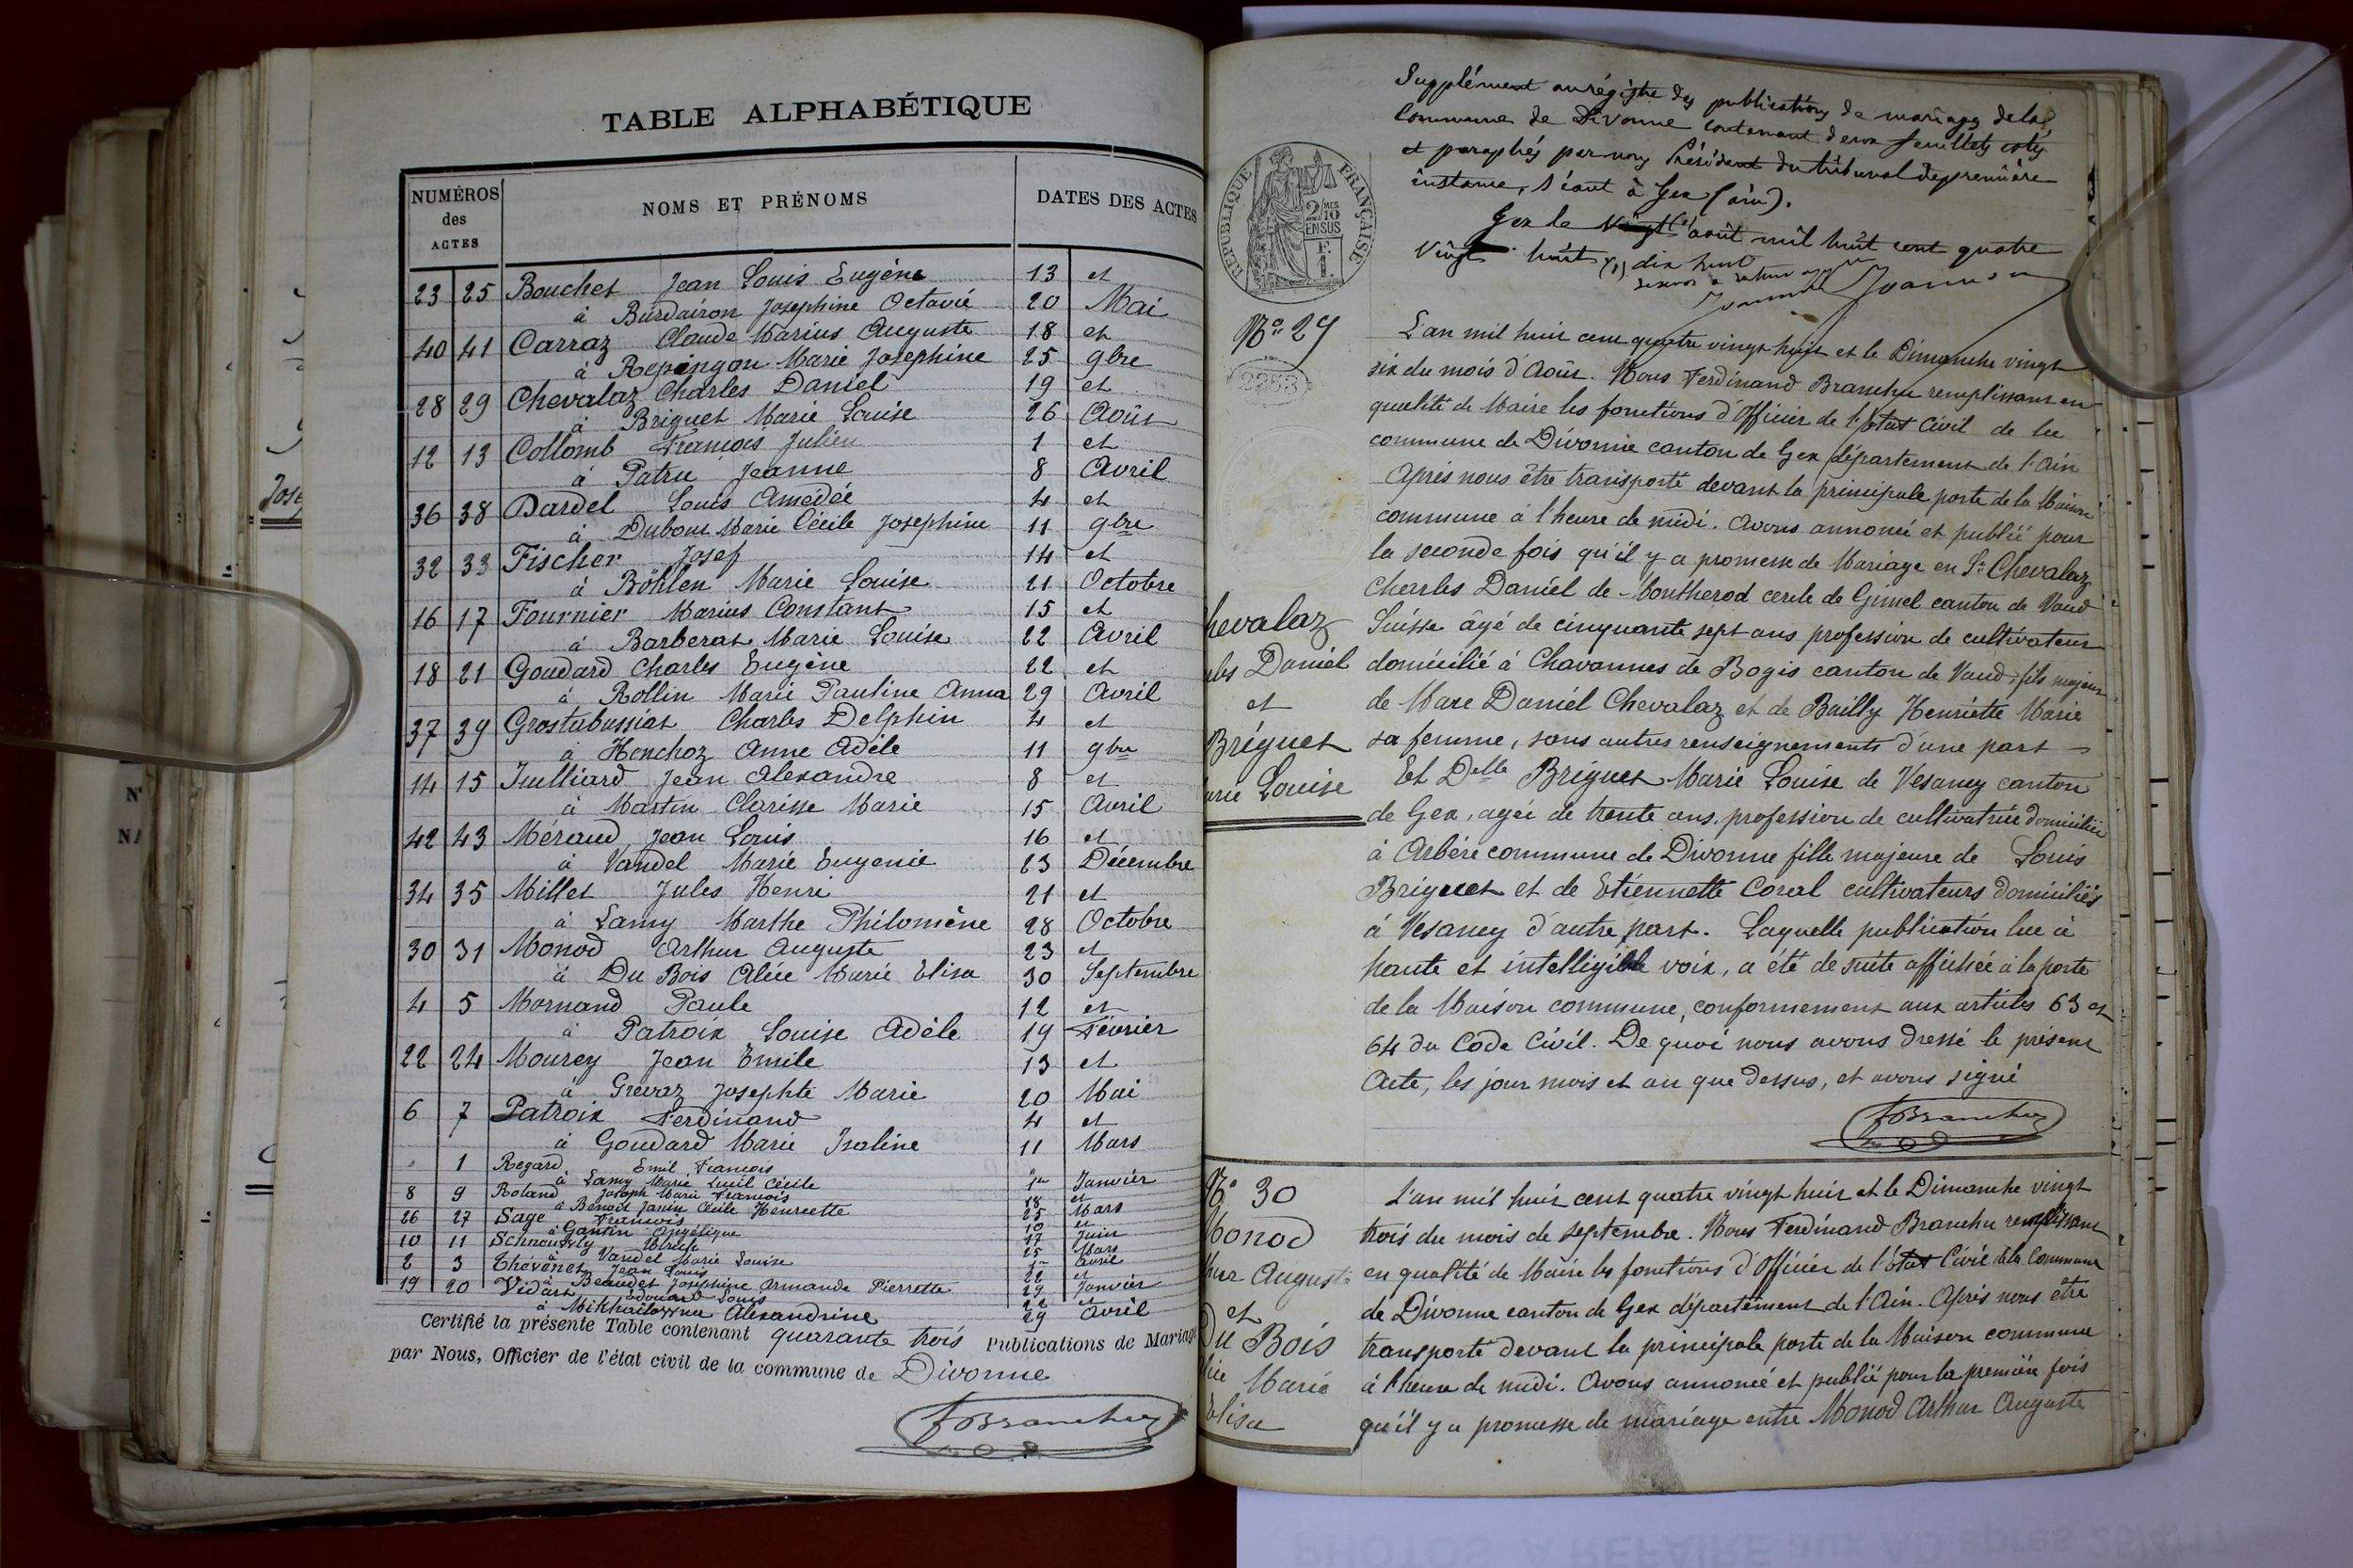 TABLE ALPHABÉTIQUE
NUMÉROS des ACTES
NOMS ET PRÉNOMS
DATES DES ACTES
23 25 Bouchet Jean Louis Eugène 13 et
à Burdairon Josephine Octavie 20 Mai
40 41 Carraz Claude Marius Auguste 18 et
à Repingon Marie Josephine 25 9bre
28 29 Chevalaz Charles Daniel 19 et
à Briguet Marie Louise 26 Août
12 13 Collomb François Julien 1 et
à Patru Jeanne 8 Avril
36 38 Dardel Louis Amédée 4 et
à Dubout Marie Cécile Josephine 11 9bre
32 33 Fischer Josef 14 et
à Böhlen Marie Louise 21 Octobre
16 17 Fournier Marius Constant 15 et
à Barberat Marie Louise 22 Avril
18 21 Goudard Charles Eugène 22 et
à Rollin Marie Pauline Anna 29 Avril
37 39 Grostabussiat Charles Delphin 4 et
à Henchoz Anne Adèle 11 9bre
14 15 Juilliard Jean Alexandre 8 et
à Martin Clarisse Marie 15 Avril
42 43 Méraud Jean Louis 16 et
à Vandel Marie Eugenie 23 Décembre
34 35 Millet Jules Henri 21 et
à Lamy Marthe Philomène 28 Octobre
30 31 Monod Arthur Auguste 23 et
à Du Bois Alice Marie Elisa 30 Septembre
4 5 Mornand Paule 12 et
à Patroix Louise Adèle 19 Février
22 24 Mourey Jean Emile 13 et
à Grevaz Josephte Marie 20 Mai
6 7 Patroix Ferdinand 4 et
à Goudard Marie Isaline 11 Mars
1 Regard Emil François
à Lamy Marie Cécile 1er Janvier
8 9 Roland Joseph Marie François 18 et
à Benoit Janin Cécile Henriette 25 Mars
26 27 Sage François 10 et
à Gantin Angélique 17 Juin
10 11 Ulrich 25 Mars
à Vandel Marie Louise 1er Avril
2 3 Thévenet Jean Louis 22 et
à Beaudet Josephine Armande Pierrette 29 Janvier
19 20 Vidart Edouard Louis 22 et
à Alexandrine 29 Avril
Certifié la présente Table contenant quarante trois Publications de Mariage
par Nous, Officier de l'état civil de la commune de Divonne
FBranchu
Supplément au régistre des publications de mariages de la
Commune de Divonne contenant deux feuillets cotés
et paraphés par nous Président du tribunal de première
instance, séant à Gex (ain).
Gex le vingt août mil huit cent quatre
vingt huit (1) dix huit
RÉPUBLIQUE FRANÇAISE
2 MES 10 EN SUS
F. 1.
No 29
L'an mil huit cent quatre vingt huit et le Dimanche vingt
six du mois d'Août. Nous Ferdinand Branchu remplissant en
qualité de Maire les fonctions d'Officier de l'état Civil de la
commune de Divonne canton de Gex département de l'Ain
Après nous être transporté devant la principale porte de la Maison
commune à l'heure de midi. Avons annoncé et publié pour
la seconde fois qu'il y a promesse de Mariage en Sr Chevalaz
Charles Daniel de Montherod cercle de Gimel canton de Vaud
Suisse âgé de cinquante sept ans profession de cultivateur
domicilié à Chavannes de Bogis canton de Vaud, fils majeur
de Marc Daniel Chevalaz et de Bailly Henriette Marie
sa femme, sans autres renseignements d'une part
Et Delle Briguet Marie Louise de Vesancy canton
de Gex, agée de trente ans, profession de cultivatrice domiciliée
à Arbère commune de Divonne fille majeure de Louis
Briguet et de Etiennette Coral cultivateurs domiciliés
à Vesancy d'autre part. Laquelle publication lue à
haute et intelligible voix, a été de suite affichée à la porte
de la Maison commune, conformement aux articles 63 et
64 du Code Civil. De quoi nous avons dressé le présent
Acte, les jour mois et an que dessus, et avons signé
FBranchu
hevalaz
les Daniel
et
Briguet
arie Louise
No 30
Monod
hur Auguste
et
Du Bois
lice Marie
Elisa
L'an mil huit cent quatre vingt huit et le Dimanche vingt
trois du mois de septembre. Nous Ferdinand Branchu remplissant
en qualité de Maire les fonctions d'Officier de l'état Civil de la Commune
de Divonne canton de Gex département de l'Ain. Après nous être
transporté devant la principale porte de la Maison commune
à l'heure de midi. Avons annoncé et publié pour la première fois
qu'il y a promesse de mariage entre Monod Arthur Auguste